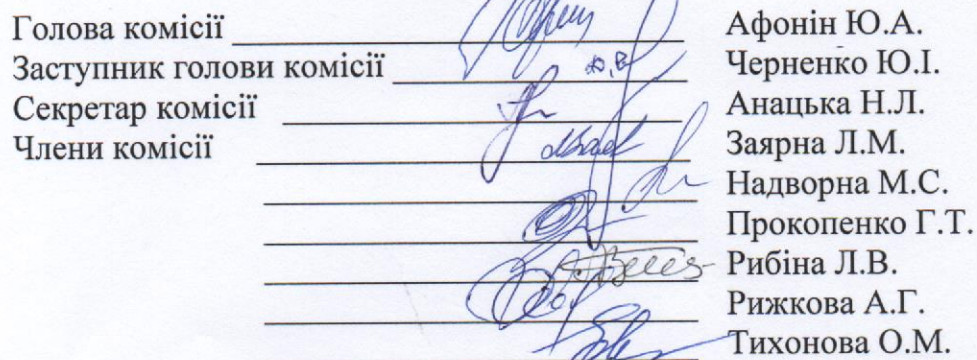 Голова комісії Афонін Ю.А.
Заступник голови комісії Черненко Ю.І.
Секретар комісії Анацька Н.Л.
Члени комісії Заярна Л.М.
Надворна М.С.
Прокопенко Г.Т.
Рибіна Л.В.
Рижкова А.Г.
Тихонова О.М.